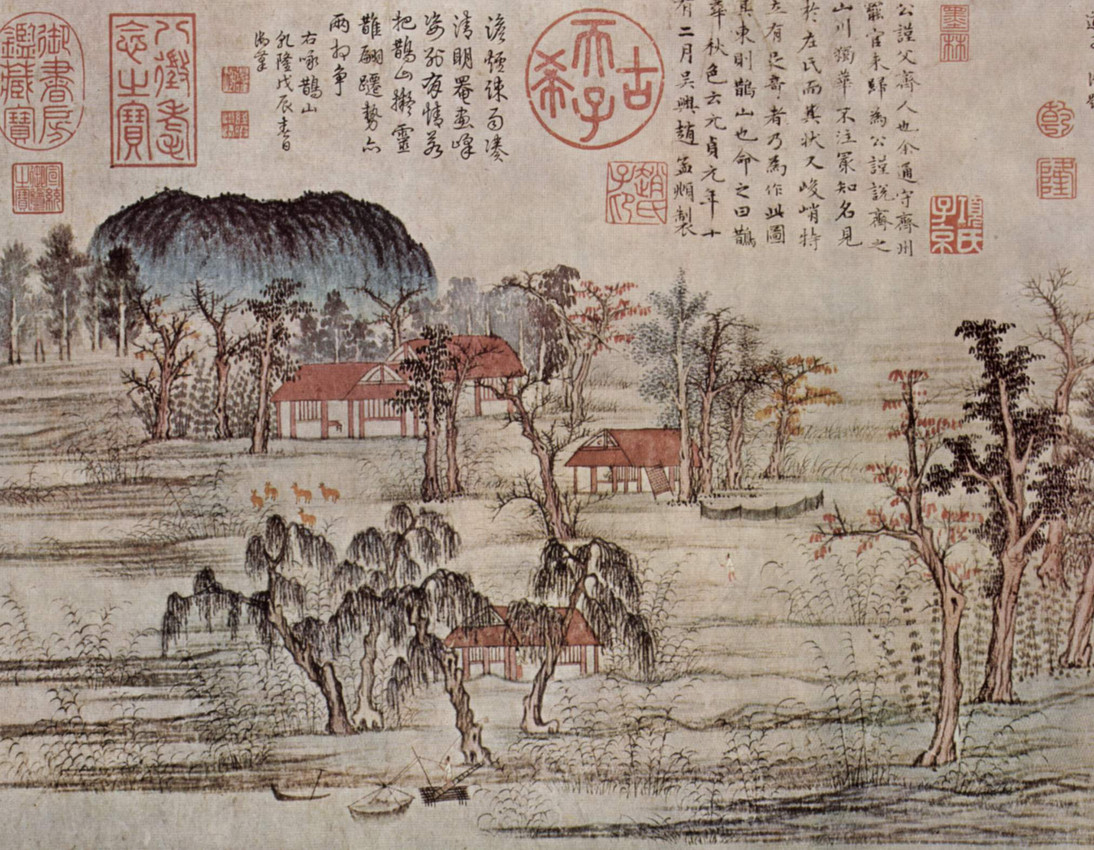 墨林
乾
隆
項氏子京
公謹父齊人也余通守齊州
罷官來歸為公謹說齊之
山川獨華不注冣知名見
於左氏而其狀又峻峭特
立有足奇者乃為作此圖
其東則鵲山也命之曰鵲
華秋色云元貞元年十
有二月吳興趙孟頫製
趙氏子
古希天子
澹煙疎雨湊
清明罨畫峰
姿有情若
把鵲山擬靈
鵲翩躚勢亦
兩相爭
右咏鵲山
乾隆戊辰春日
御筆
八徵耄念之寶
御書房鑑藏寶